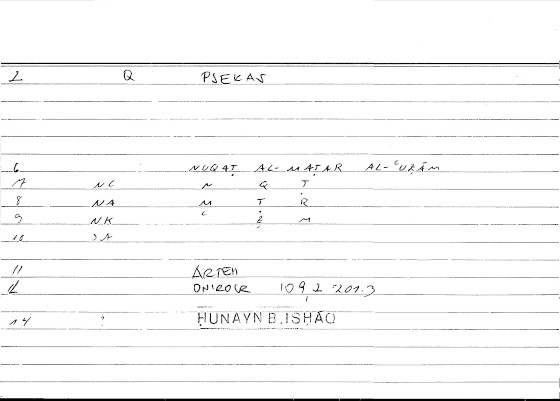 2 Q PSEKAS
6 NUQAṬ AL-MAṬAR AL-ʿUẒĀM
7 NC N Q Ṭ
8 NA M Ṭ R
9 NK ʿ Ẓ M
10 SA
11 ARTEM
12 ONIROCR 109,2 201.3
14 ? ḤUNAYN B. ISḤĀQ